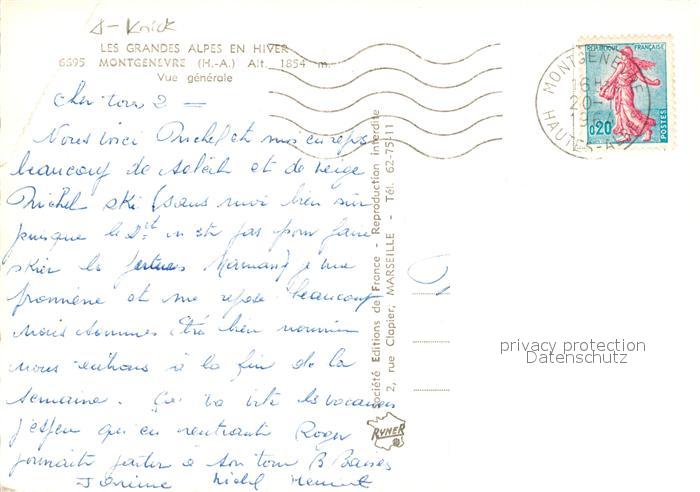 LES GRANDES ALPES EN HIVER
6695 MONTGENEVRE (H.-A.) Alt. 1854 m.
Vue générale
RÉPUBLIQUE FRANÇAISE
0,20
POSTES
MONTGENEVRE
16H
20-
19
HAUTES-ALPES
Cher tous 2 =
Nous voici Michel et moi en repos
beaucoup de soleil et de neige
Michel ski (sans moi bien sûr
puisque le Dr. n'est pas pour faire
skier les futures Mamans) je me
promène et me repose beaucoup
nous sommes très bien nourris
nous rentrons à la fin de la
semaine. Ça va vite les vacances
j'espère qu'en rentrant Roger
pourrait partir à son tour B Baises
Michel
Société Editions de France - Reproduction interdite
2, rue Clapier, MARSEILLE - Tél. 62-75-11
RYNER
privacy protection
Datenschutz